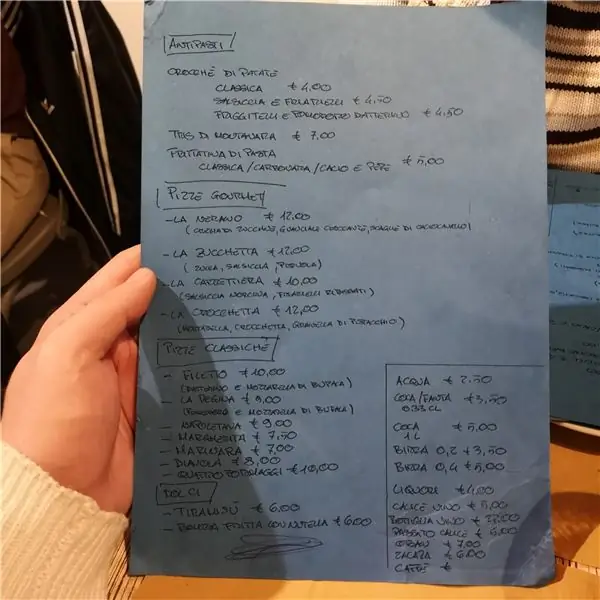 ANTIPASTI
CROCCHÈ DI PATATE
CLASSICA € 4,00
SALSICCIA E FRIARIELLI € 4,50
FRIGGITELLI E POMODORO DATTERINO € 4,50
TRIS DI MONTANARA € 7,00
FRITTATINA DI PASTA
CLASSICA/CARBONARA/CACIO E PEPE € 5,00
PIZZE GOURMET
- LA NERANO € 12,00
(CREMA DI ZUCCHINE, GUANCIALE CROCCANTE, SCAGLIE DI CACIOCAVALLO)
- LA ZUCCHETTA € 12,00
(ZUCCA, SALSICCIA, PROVOLA)
- LA CARRETTIERA € 10,00
(SALSICCIA NORCINA, FRIARIELLI RIPASSATI)
- LA CROCCHETTA € 12,00
(MORTADELLA, CROCCHETTA, GRANELLA DI PISTACCHIO)
PIZZE CLASSICHE
- FILETTO € 10,00
(DATTERINO E MOZZARELLA DI BUFALA)
- LA REGINA € 9,00
(POMODORO E MOZZARELLA DI BUFALA)
- NAPOLETANA € 9,00
- MARGHERITA € 7,50
- MARINARA € 7,00
- DIAVOLA € 8,00
- QUATTRO FORMAGGI € 10,00
DOLCI
- TIRAMISÙ € 6,00
- FRITTA CON NUTELLA € 6,00
ACQUA € 2,50
COCA/FANTA € 3,50
0.33 CL
COCA € 5,00
1 L
BIRRA 0,2 € 3,50
BIRRA 0,4 € 5,00
LIQUORI € 4,00
CALICE VINO € 5,00
BOTTIGLIA VINO
CALICE € 6,00
€ 7,00
ZACAPA € 6,00
CAFFÈ €